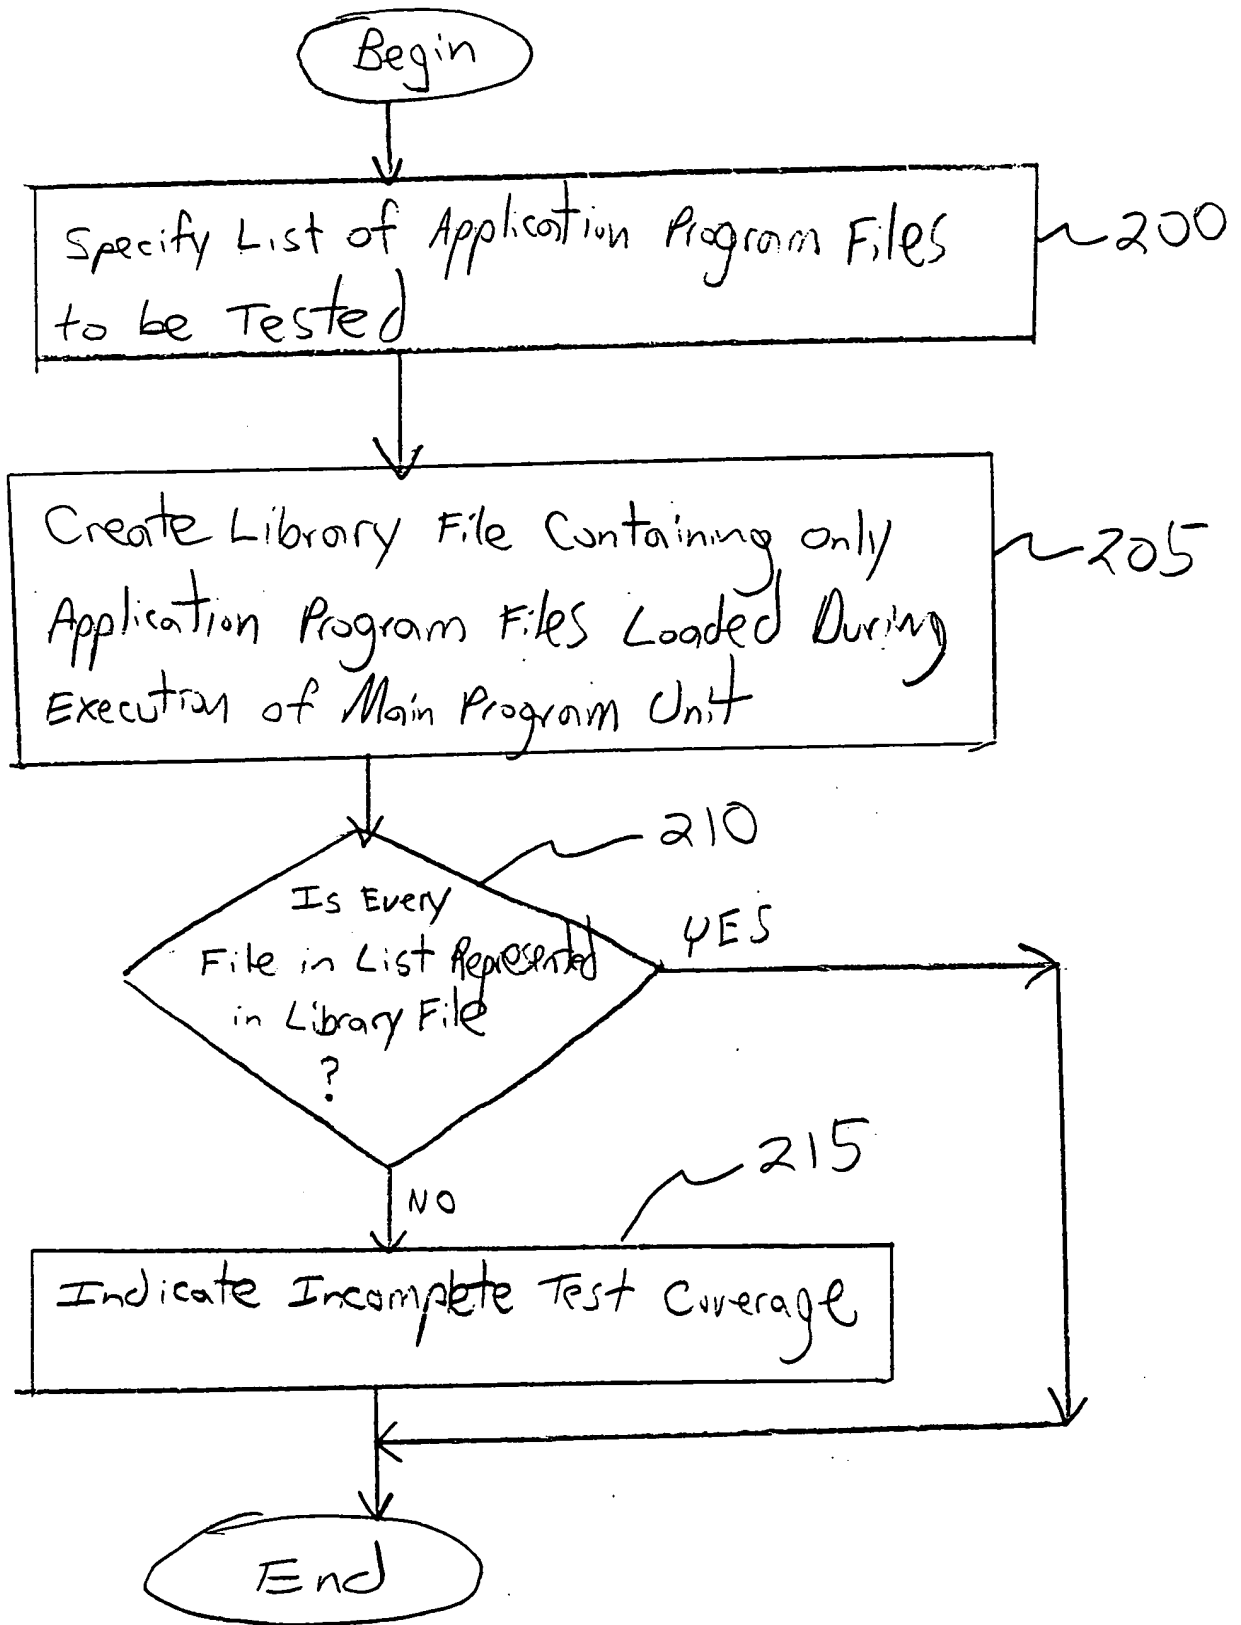 Begin
Specify List of Application Program Files
to be Tested
200
Create Library File Containing only
Application Program Files Loaded During
Execution of Main Program Unit
205
210
Is Every
File in List Represented
in Library File
?
YES
NO
215
Indicate Incomplete Test Coverage
End